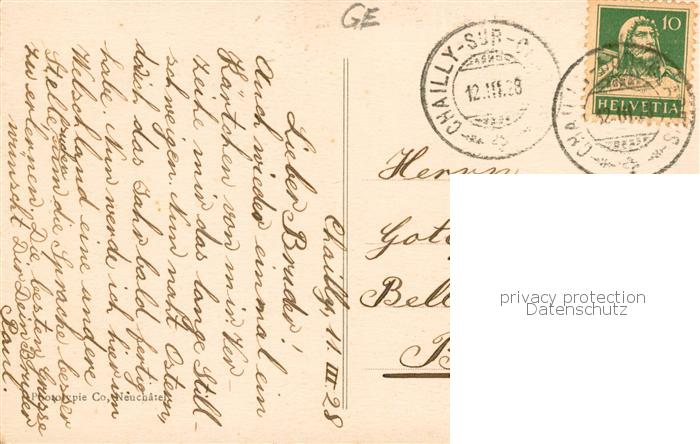 GE
CHAILLY-SUR-C
12.III.28
10
HELVETIA
CHAILLY
Chailly, 11. III. 28
Lieber Bruder!
Auch wieder einmal ein
Kärtchen von mir. Ver-
zeihe mir das lange Still-
schweigen. Nun naht Ostern,
doch das Jahr bald fertig
habe. Nun werde ich hier im
Welschland eine andere
Stelle suchen um die Sprache besser
zu erlernen. Die besten Grüsse
wünscht Dir Dein Bruder
Paul.
Phototypie Co, Neuchâtel
Herrn
Bell
privacy protection
Datenschutz